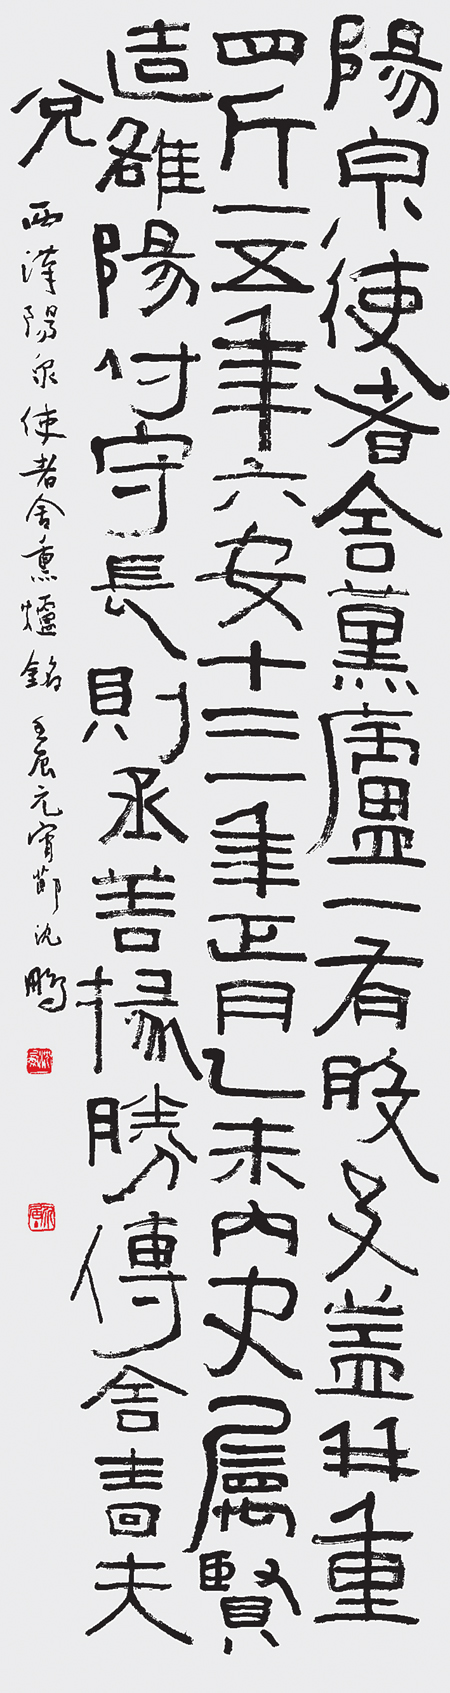 陽泉使者舍薰廬一有般及盖并重
四斤一五年六安十三年正月乙未內史屬賢
造雒陽付守長則丞善掾勝傳舍嗇夫
兌
西漢陽泉使者舍熏爐銘 壬辰元宵節沈鵬